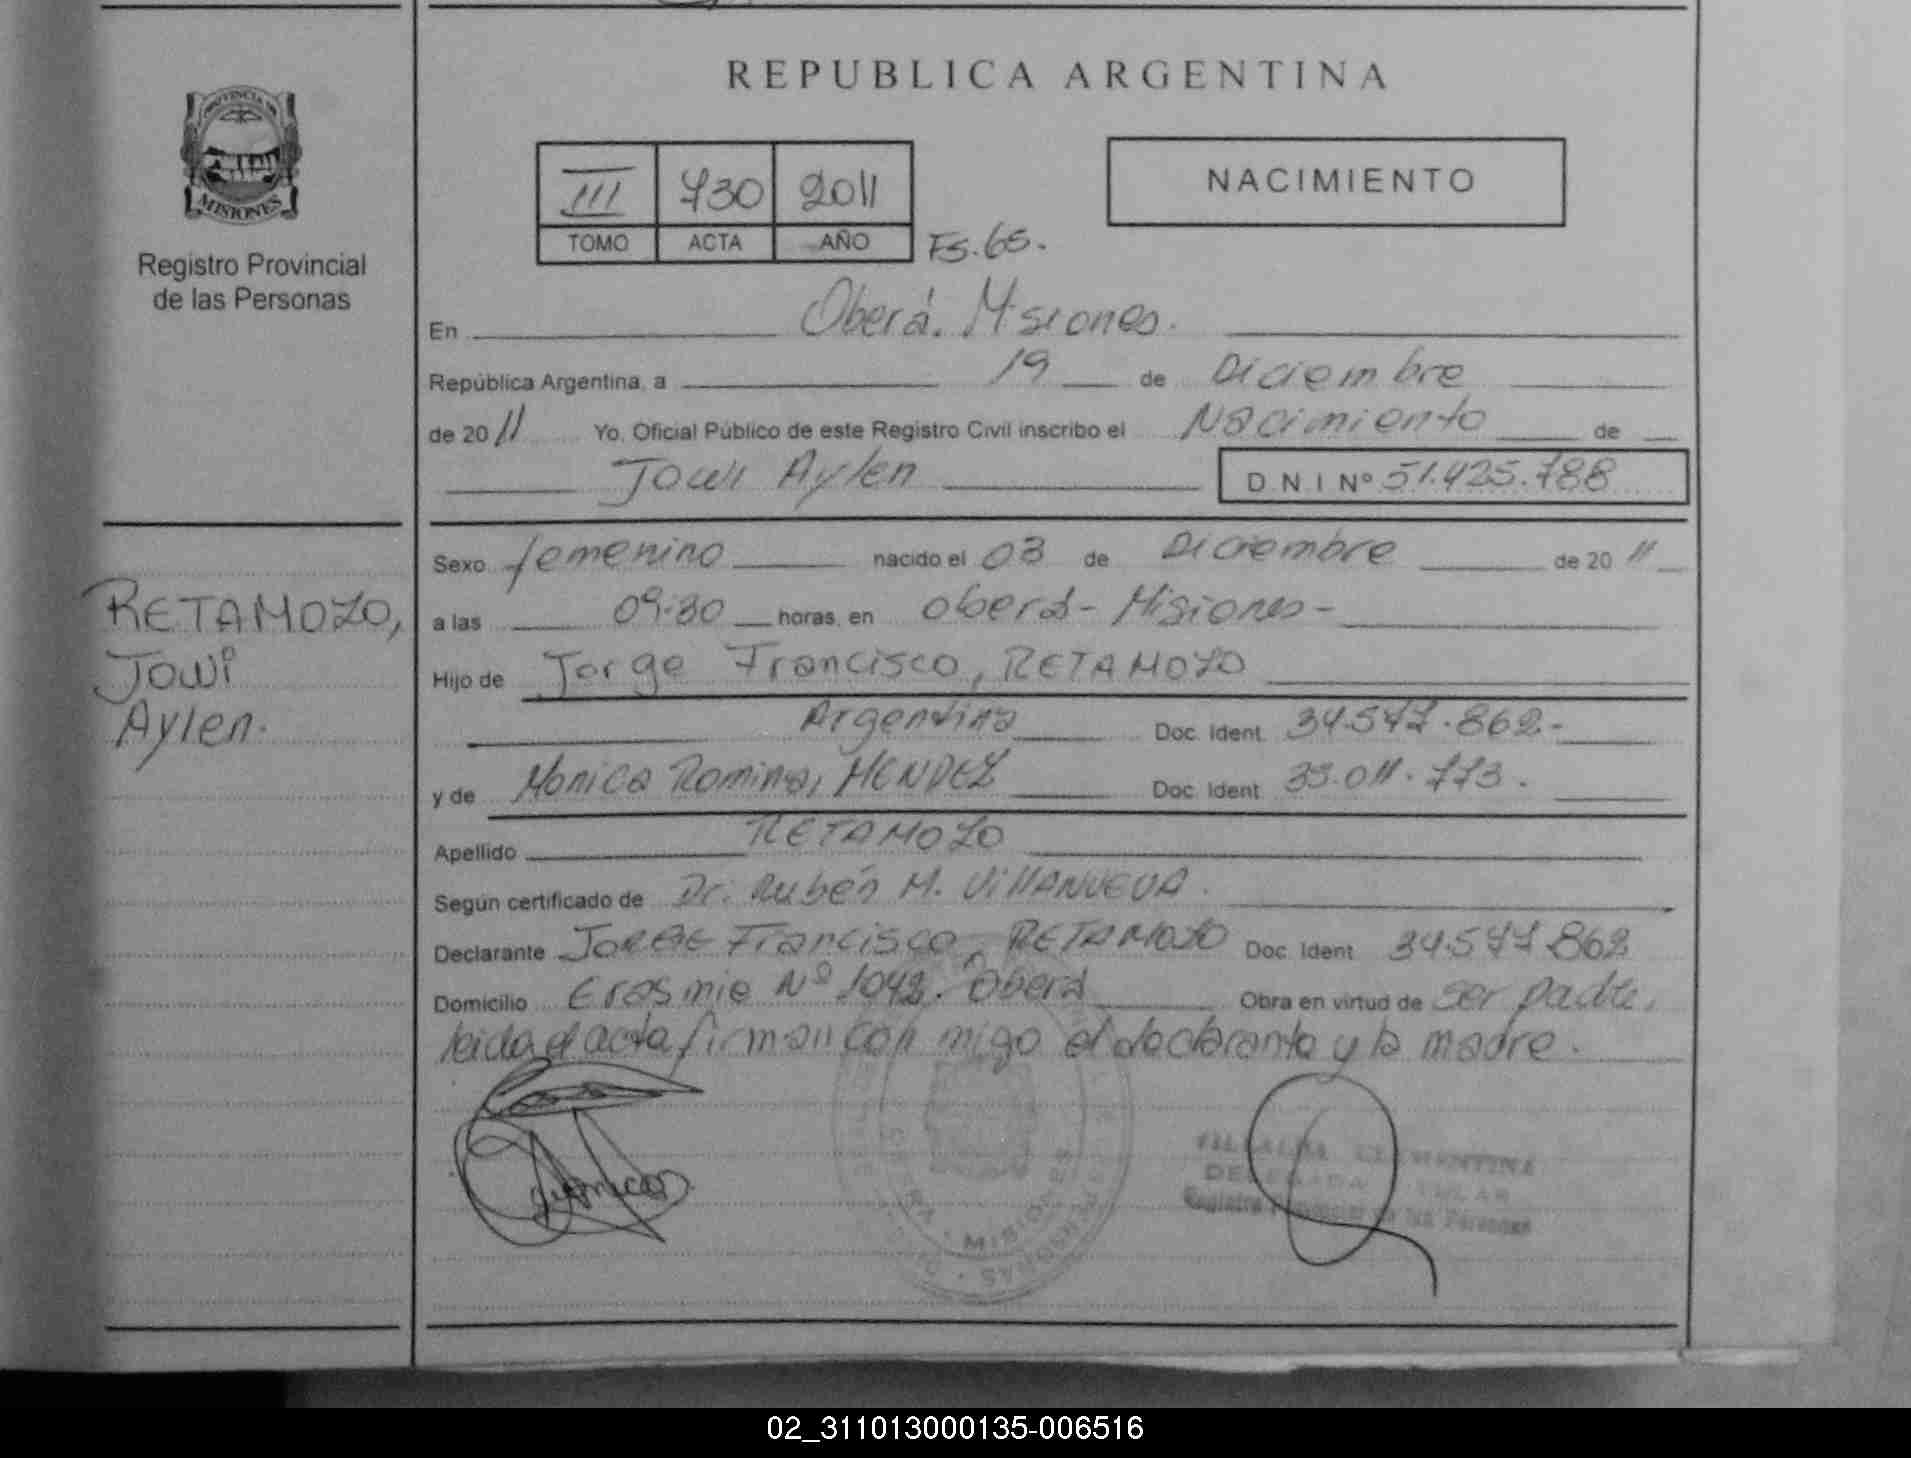 REPUBLICA ARGENTINA
PROVINCIA DE
MISIONES
Registro Provincial
de las Personas
III 730 2011
TOMO ACTA AÑO Fs. 65.
NACIMIENTO
En Oberá. Misiones.
República Argentina, a 19 de Diciembre
de 2011 Yo, Oficial Público de este Registro Civil inscribo el Nacimiento de
Jowi Aylen D.N.I Nº 51.425.788
RETAMOZO,
Jowi
Aylen.
Sexo femenino nacido el 03 de Diciembre de 2011
a las 09:30 horas, en oberá - Misiones -
Hijo de Jorge Francisco, RETAMOZO
Argentina Doc. Ident. 34.577.862.-
y de Monica Romina, MENDEZ Doc. Ident. 35.011.773.
Apellido RETAMOZO
Según certificado de Dr. Rubén M. VILLANUEVA.
Declarante JORGE Francisco, RETAMOZO Doc. Ident. 34.577.862
Domicilio Erasmie Nº 1042. Oberá Obra en virtud de ser padre,
leida el acta firman con migo el declarante y la madre.
OBERA - MISIONES
CLEMENTINA
Registro Provincial de las Personas
02_311013000135-006516